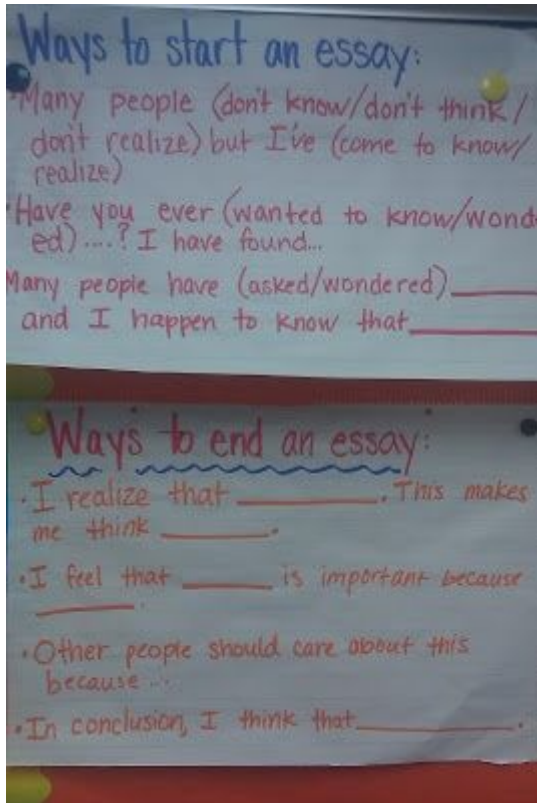 Ways to start an essay:
•Many people (don't know/don't think/
don't realize) but I've (come to know/
realize)
•Have you ever (wanted to know/wond
ed)....? I have found...
Many people have (asked/wondered)______
and I happen to know that______
Ways to end an essay:
•I realize that ______. This makes
me think ______.
•I feel that ______ is important because
______.
•Other people should care about this
because ...
•In conclusion, I think that______.